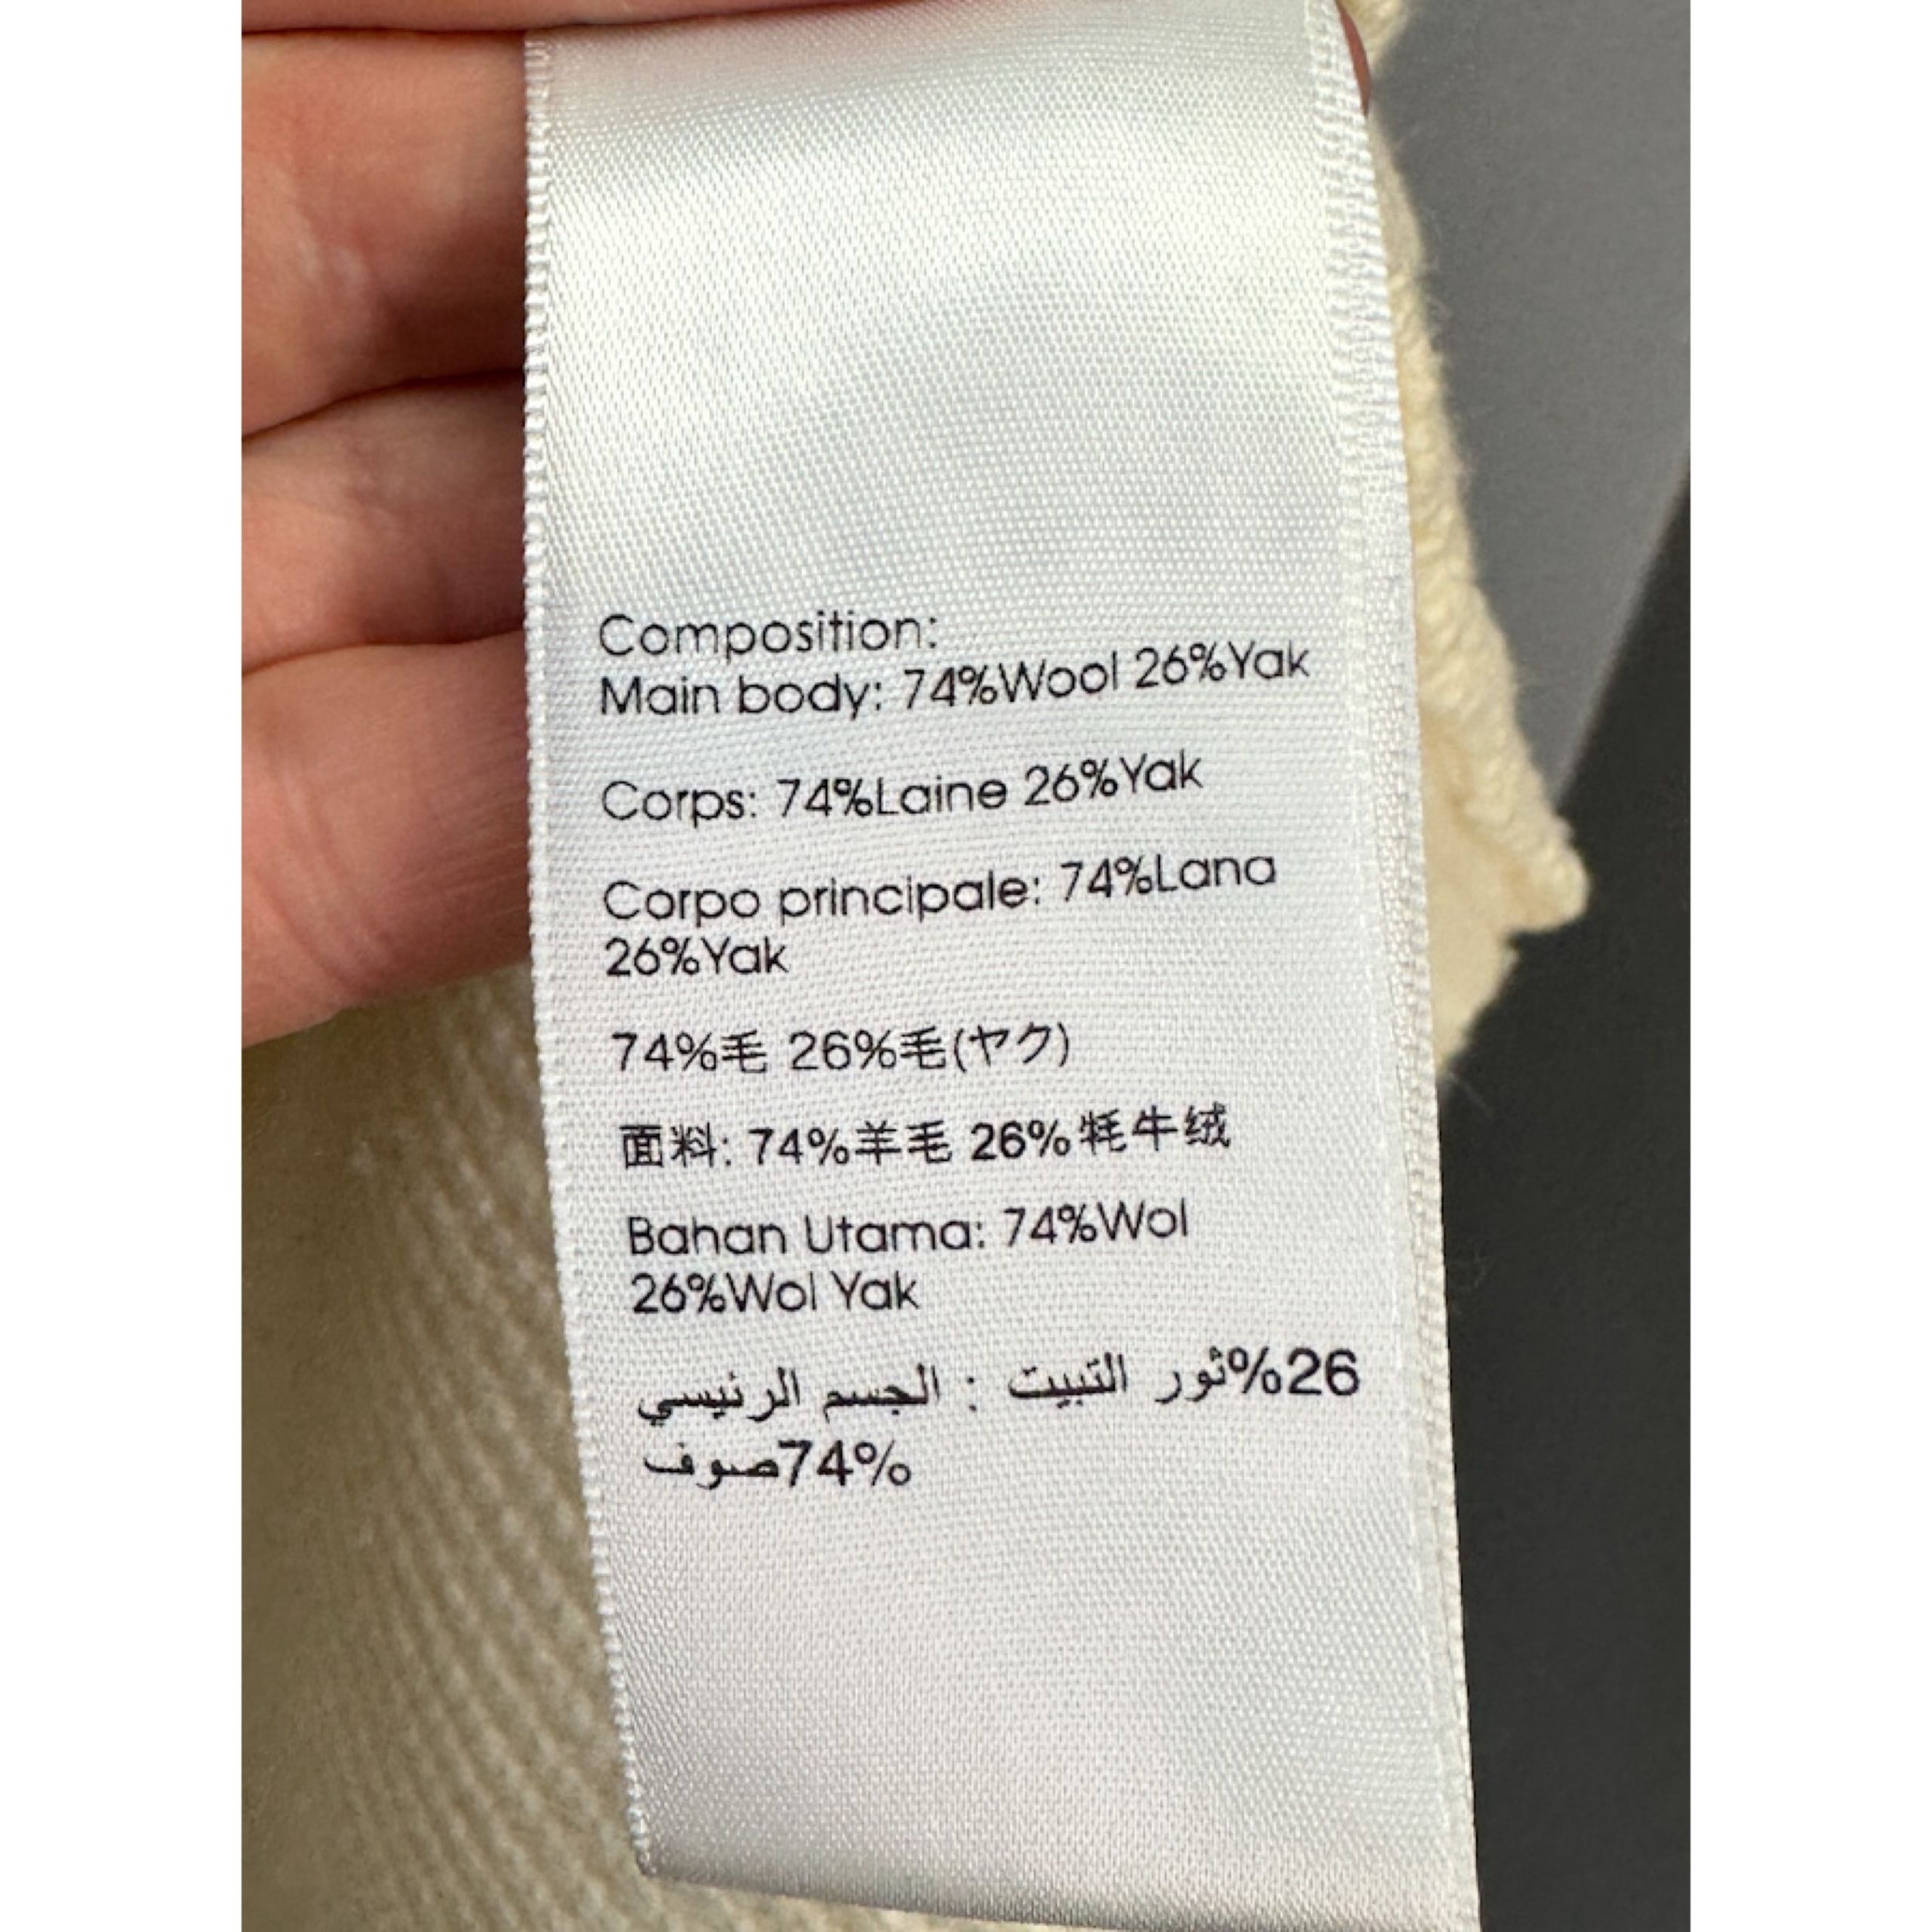 Composition:
Main body: 74%Wool 26%Yak
Corps: 74%Laine 26%Yak
Corpo principale: 74%Lana
26%Yak
74%毛 26%毛(ヤク)
面料: 74%羊毛 26%牦牛绒
Bahan Utama: 74%Wol
26%Wol Yak
الجسم الرئيسي : التبيت ثور%26
74%صوف